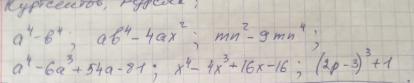 Курт
a⁴-b⁴; ab⁴-4ax²; mn²-9mn⁴;
a⁴-6a³+54a-81; x⁴-4x³+16x-16; (2p-3)³+1